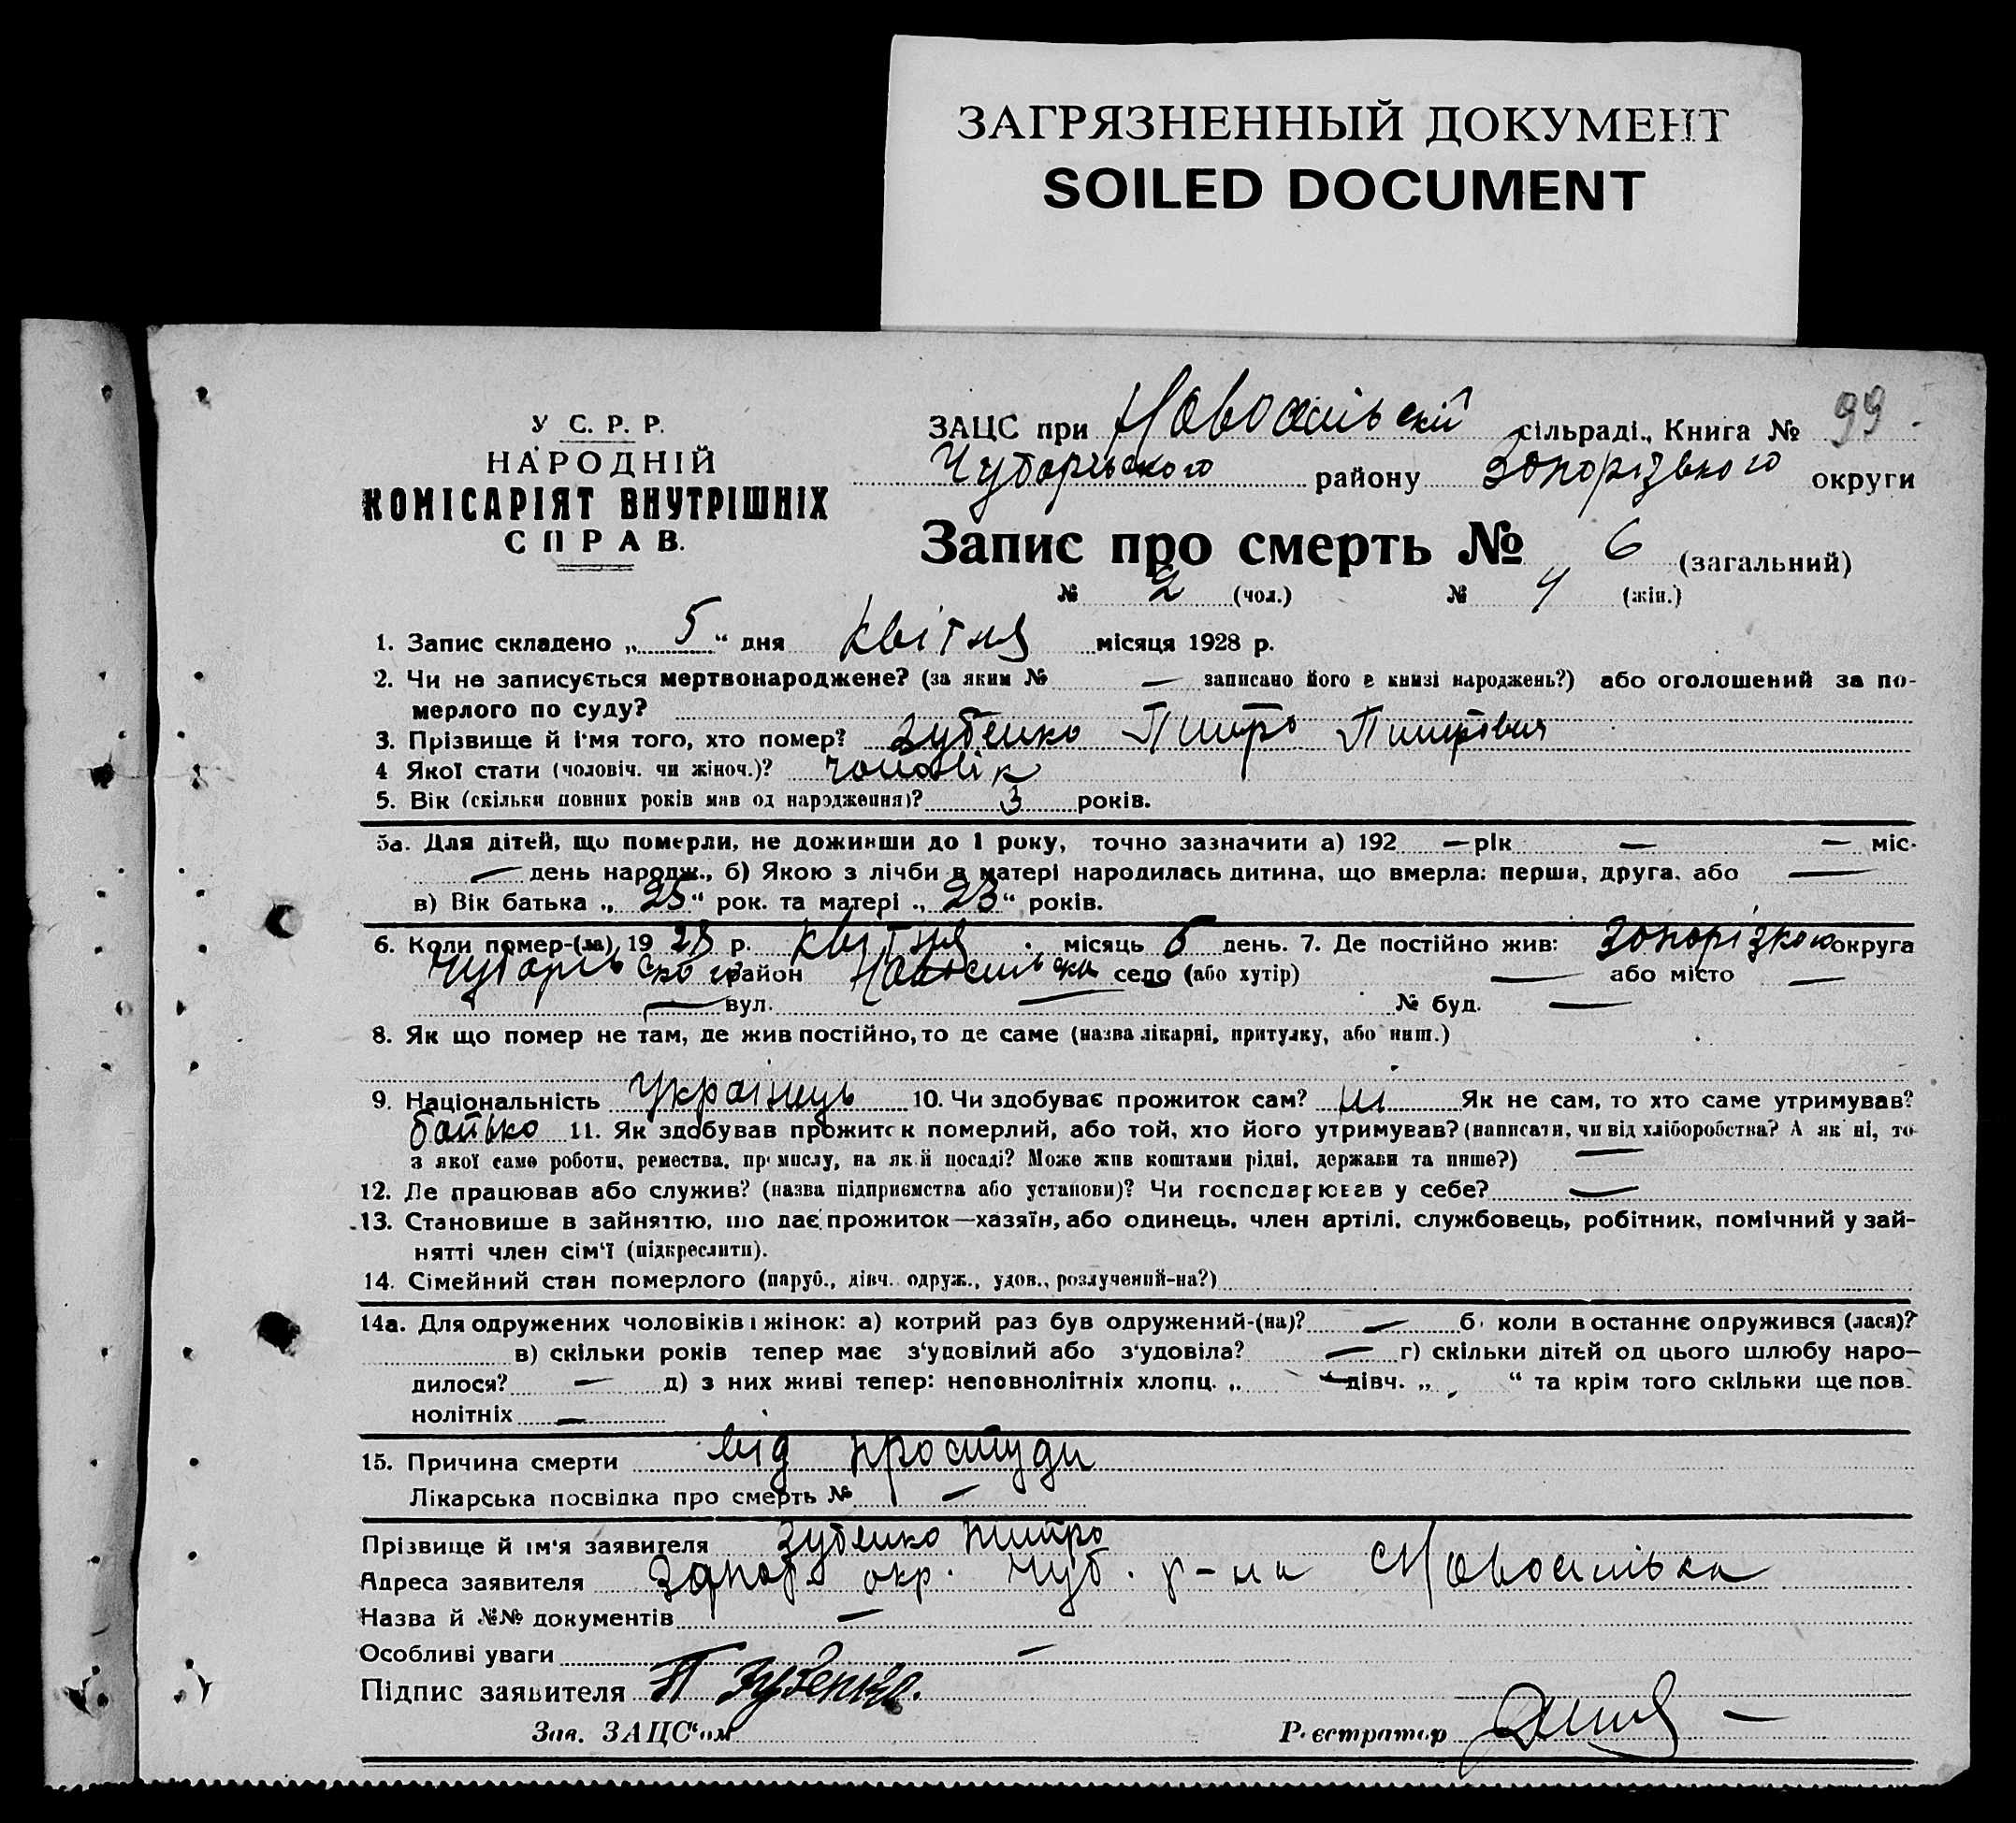 ЗАГРЯЗНЕННЫЙ ДОКУМЕНТ
SOILED DOCUMENT
У С. Р. Р.
НАРОДНІЙ
КОМІСАРІЯТ ВНУТРІШНІХ
СПРАВ.
ЗАЦС при Новосільскій сільраді., Книга № 99
Чубарського району Запорізького округи
Запис про смерть № 6 (загальний)
№ 2 (чол.) № 4 (жін.)
1. Запис складено „ 5 “ дня Квітня місяця 1928 р.
2. Чи не записується мертвонароджене? (за яким № — записано його в книзі народжень?) або оголошений за по-
мерлого по суду?
3. Прізвище й ім'я того, хто помер? Зубенко Питро Питрович
4 Якої стати (чоловіч. чи жіноч.)? чоловік
5. Вік (скільки повних років мав од народження)? 3 років.
5а. Для дітей, що померли, не доживши до 1 року, точно зазначити а) 192 — рік — — міс.
— день народж., б) Якою з лічби в матері народилась дитина, що вмерла: перша, друга, або —
в) Вік батька „ 25 “ рок. та матері „ 23 “ років.
6. Коли помер-(ла) 1928 р. Квітня місяць 5 день. 7. Де постійно жив: Запорізкою округа
Чубарьского район Новосилька село (або хутір) — або місто —
— вул. — № буд. —
8. Як що помер не там, де жив постійно, то де саме (назва лікарні, притулку, або инш.)
9. Національність Українець 10. Чи здобуває прожиток сам? ні Як не сам, то хто саме утримував?
батько 11. Як здобував прожиток померлий, або той, хто його утримував? (написати, чи від хліборобства? А як ні, то
з якої саме роботи, ремества, промислу, на якій посаді? Може жив коштами рідні, держави та инше?) —
12. Де працював або служив? (назва підприємства або установи)? Чи господарював у себе? —
13. Становище в зайняттю, що дає прожиток—хазяїн, або одинець, член артілі, службовець, робітник, помічний у зай-
нятті член сім'ї (підкреслити).
14. Сімейний стан померлого (паруб., дівч. одруж., удов., розлучений-на?)
14а. Для одружених чоловіків і жінок: а) котрий раз був одружений-(на)? — б) коли востаннє одружився (лася)?
в) скільки років тепер має з'удовілий або з'удовіла? — г) скільки дітей од цього шлюбу наро-
дилося? — д) з них живі тепер: неповнолітніх хлопц. „ “ дівч. „ “ та крім того скільки ще пов.
нолітніх —
15. Причина смерти від простуди
Лікарська посвідка про смерть № —
Прізвище й ім'я заявителя Зубенко Питро
Адреса заявителя Запор. окр. Чуб. р-на Новосилька
Назва й №№ документів —
Особливі уваги —
Підпис заявителя П Зубенко.
Зав. ЗАЦС'ом Реєстратор